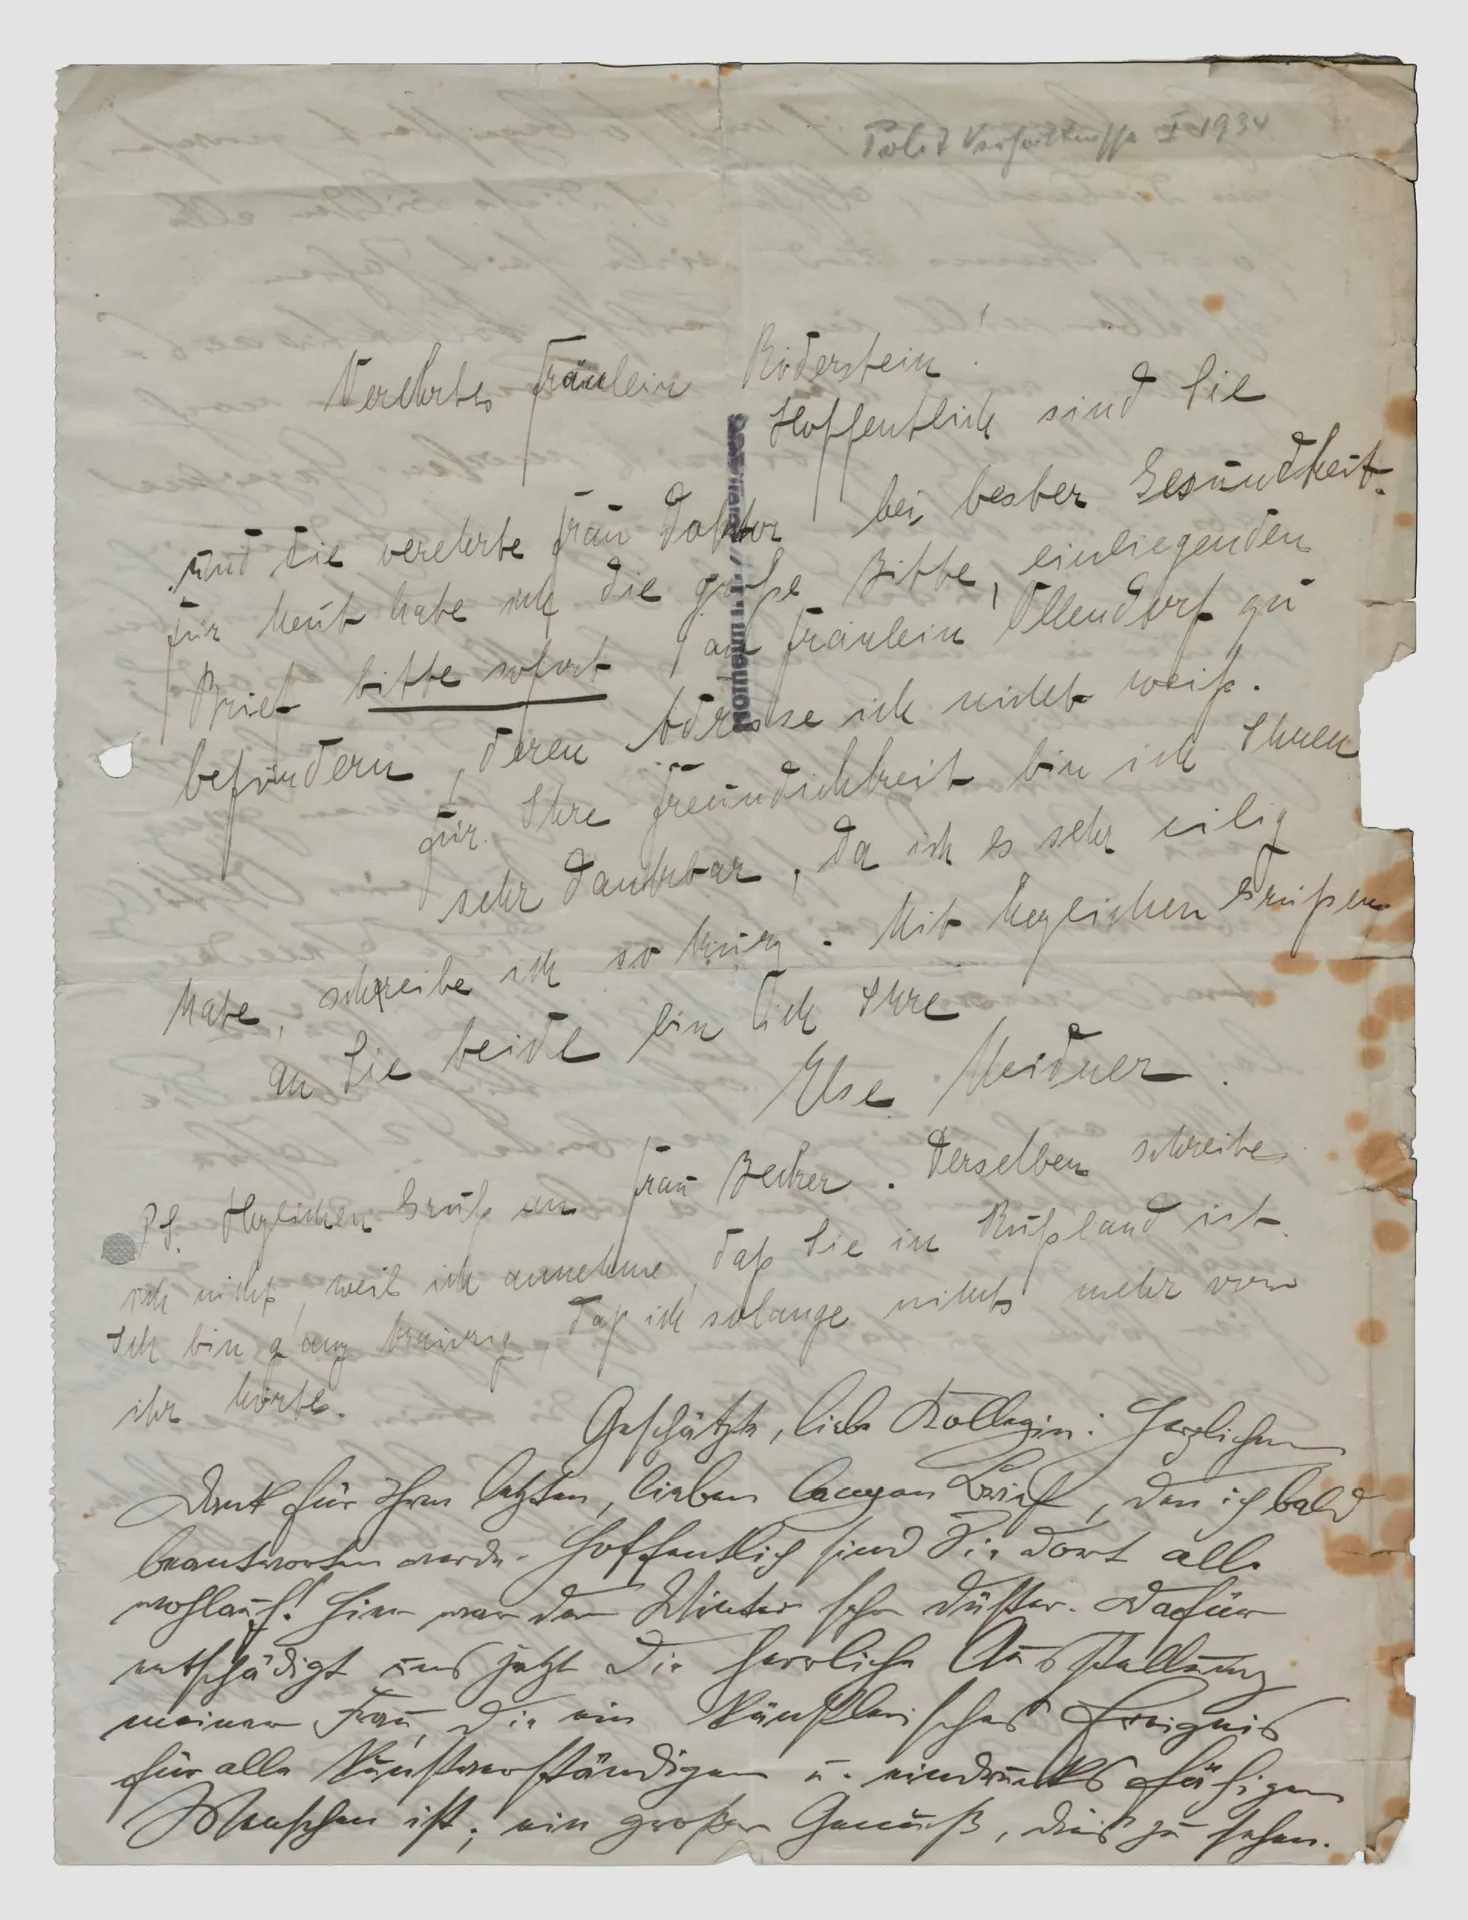 Polit Verhältnisse I 1934
Verehrtes Fräulein Röderstein!
Hoffentlich sind Sie
und die verehrte Frau Doktor bei bester Gesundheit.
Für heut habe ich die große Bitte, einliegenden
Brief bitte sofort an Fräulein Ollendorf zu
befördern, deren Adresse ich nicht weiß.
Für Ihre Freundlichkeit bin ich Ihnen
sehr dankbar, da ich es sehr eilig
habe, schreibe ich so kurz. Mit herzlichen Grüßen
an Sie beide bin ich Ihre
Else Meidner.
PS. Herzlichen Gruß an Frau Becker. Derselben schreibe
ich nicht, weil ich annehme, daß Sie in Rußland ist.
Ich bin ganz traurig, daß ich solange nichts mehr von
ihr hörte.
Geschätzte, liebe Kollegin: Herzlichen
Dank für Ihren letzten, lieben langen Brief, den ich bald
beantworten werde. Hoffentlich sind Sie dort alle
wohlauf! Hier war der Winter sehr düster. Dafür
entschädigt uns jetzt die herrliche Ausstellung
meiner Frau, die ein künstlerisches Ereignis
für alle Kunstverständigen u. eindrucksfähigen
Menschen ist; ein großer Genuß, dies zu sehen.